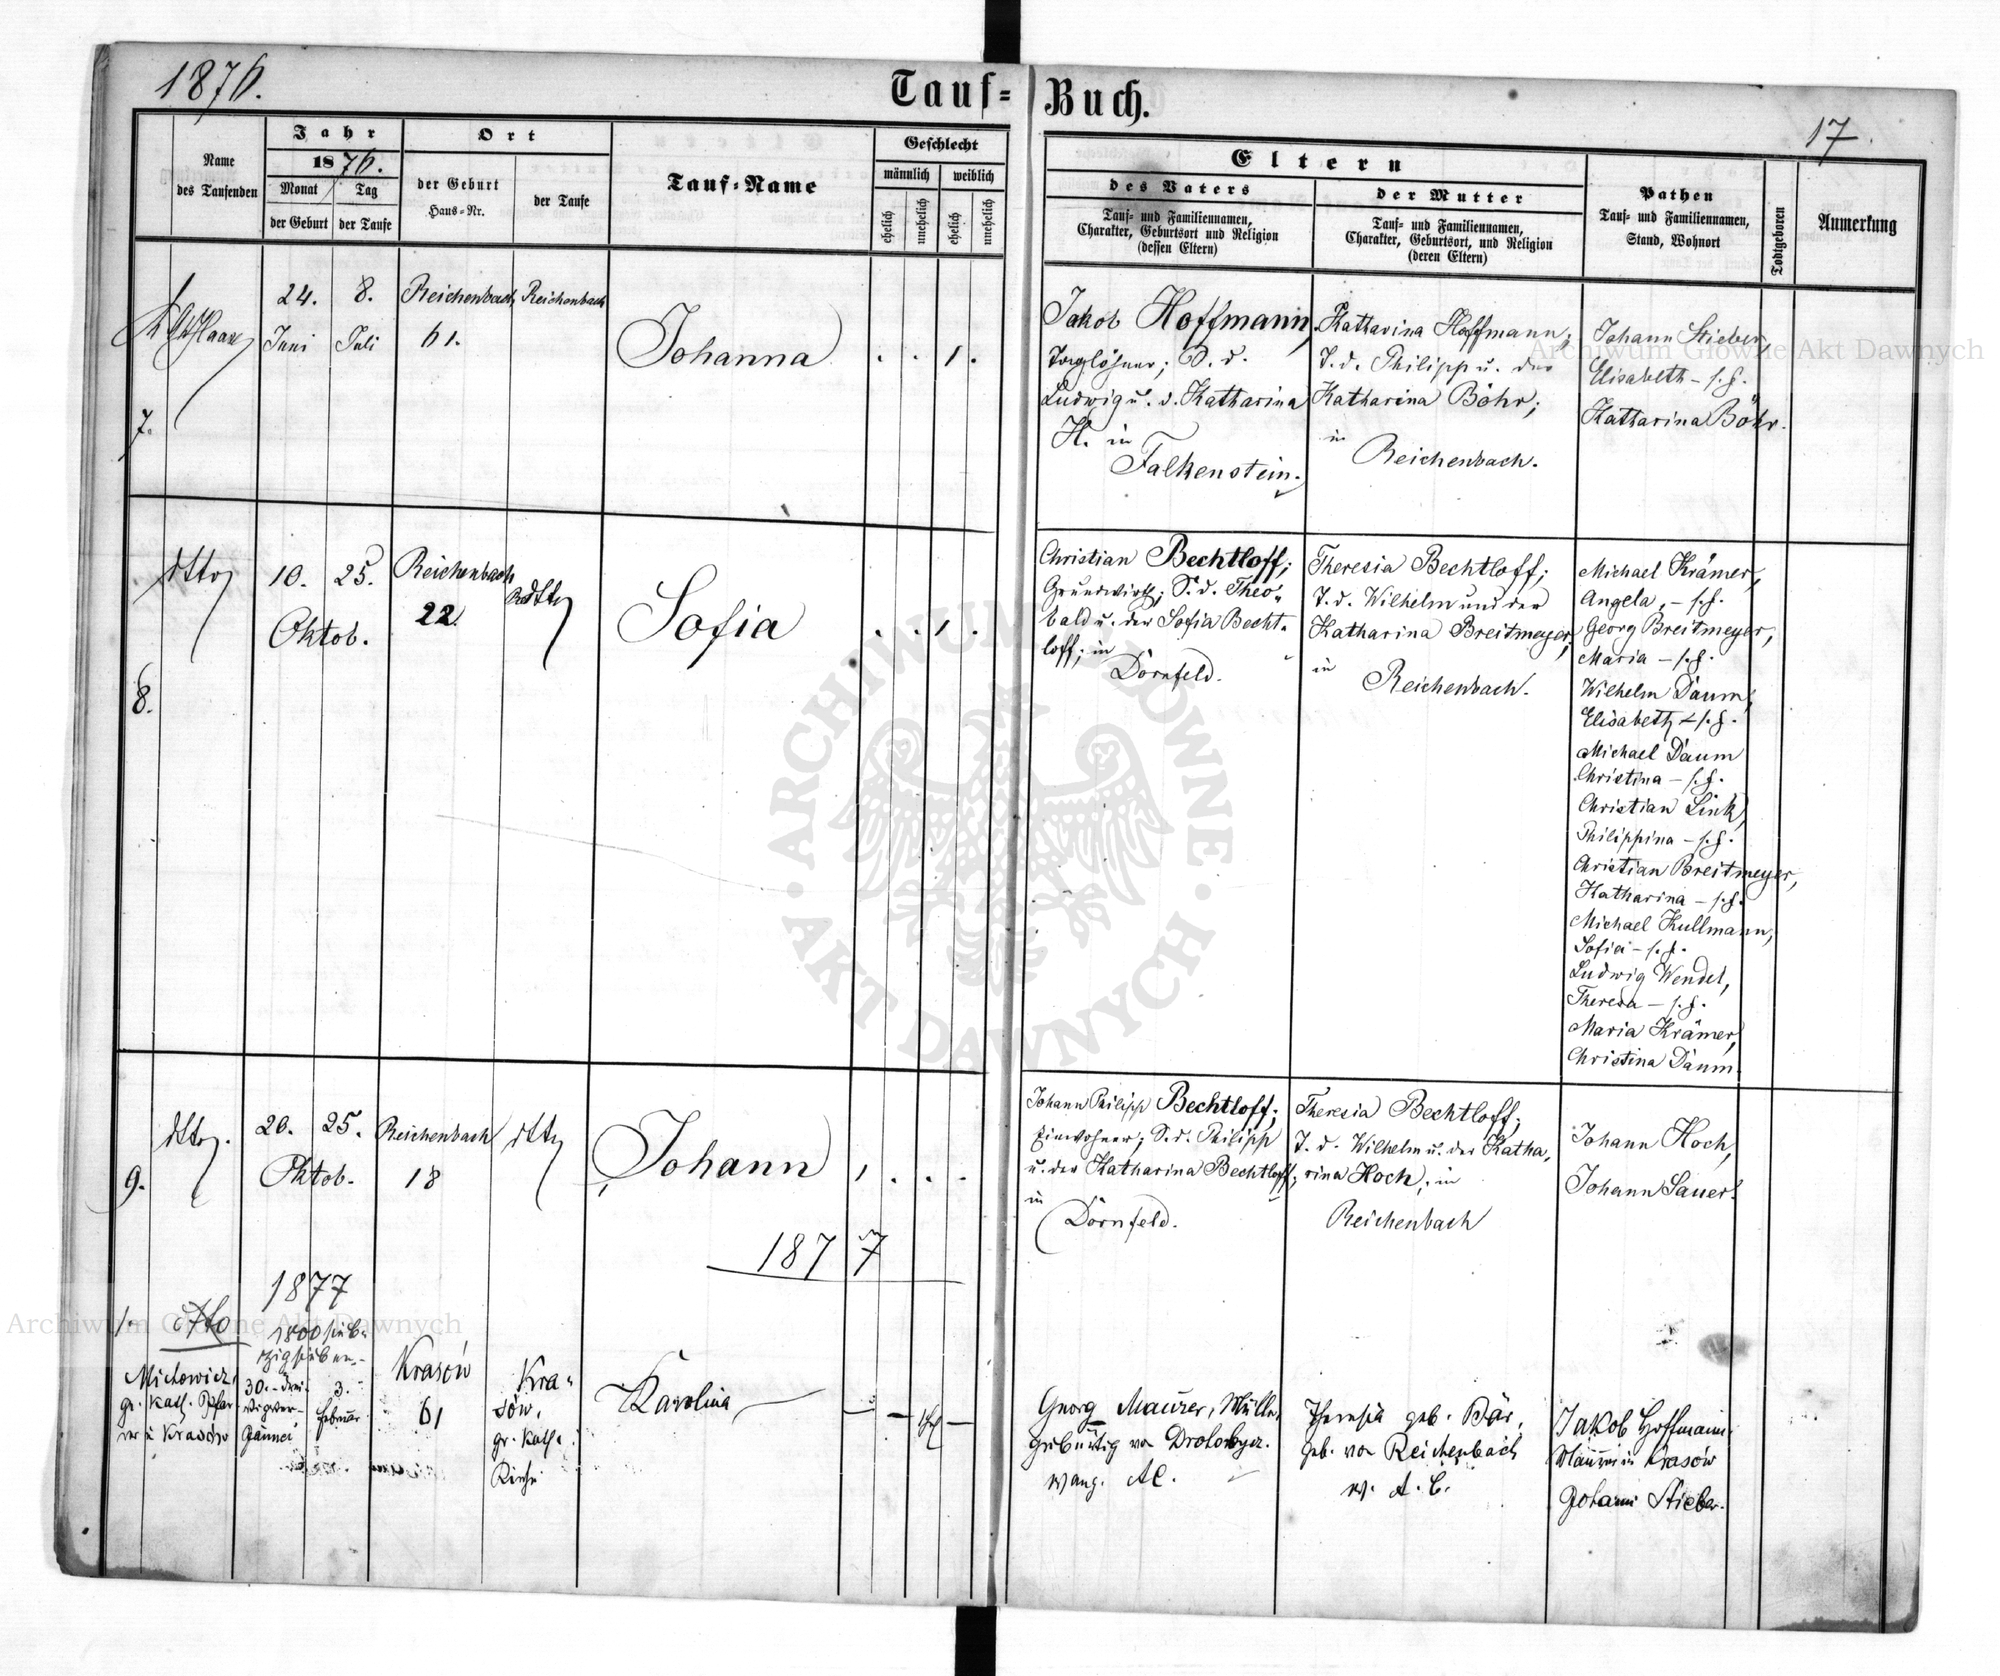 1876.
Tauf-Buch.
17
Name
des Taufenden
Jahr
1876.
Monat
der Geburt
Tag
der Taufe
Ort
der Geburt
Haus-Nr.
der Taufe
Tauf-Name
Geschlecht
männlich
weiblich
ehelich
unehelich
ehelich
unehelich
Eltern
des Vaters
Tauf- und Familiennamen,
Charakter, Geburtsort und Religion
(dessen Eltern)
der Mutter
Tauf- und Familiennamen,
Charakter, Geburtsort, und Religion
(deren Eltern)
Pathen
Tauf- und Familiennamen,
Stand, Wohnort
Todtgeboren
Anmerkung
7.
24.
Juni
8.
Juli
Reichenbach
61.
Reichenbach
Johanna
. . 1 .
Jakob Hoffmann,
Taglöhner; S. d.
Ludwig u. d. Katharina
H. in
Falkenstein.
Katharina Hoffmann;
T. d. Philipp u. der
Katharina Böhr;
in
Reichenbach.
Johann Stieber,
Elisabeth – s. G.
Katharina Böhr.
8.
dtto
10. 25.
Oktob.
Reichenbach
22
dtto
Sofia
. . 1 .
Christian Bechtloff;
Grundwirth; S. d. Theo-
bald u. der Sofia Becht-
loff; in
Dörnfeld.
Theresia Bechtloff;
T. d. Wilhelm und der
Katharina Breitmeyer,
in
Reichenbach.
Michael Krämer,
Angela, – s. G.
Georg Breitmeyer,
Maria – s. G.
Wilhelm Daum,
Elisabeth – s. G.
Michael Daum
Christina – s. G.
Christian Link,
Philippina – s. G.
Christian Breitmeyer,
Katharina – s. G.
Michael Kullmann,
Sofia – s. G.
Ludwig Wendel,
Theresa – s. G.
Maria Krämer,
Christina Daum.
9.
dtto.
20. 25.
Oktob.
Reichenbach
18
dtto
Johann
1 . . .
Johann Philipp Bechtloff;
Einwohner; S. d. Philipp
u. der Katharina Bechtloff;
in
Dörnfeld.
Theresia Bechtloff;
T. d. Wilhelm u. der Katha-
rina Hoch; in
Reichenbach
Johann Hoch,
Johann Sauer.
1877
1877
1.
dtto
1800 sieb-
zigsieben
gr. Kath. Pfar-
rer in Krasów
30. – drei-
3.
Februar
Krasów
61
Kra-
sów,
gr. Kath.
Kirche
Karolina
Georg Maurer, Müller,
gebürtig von
evang. AC.
Theresia geb. Bär,
geb. von Reichenbach
A. C.
Jakob Hoffmann
in Krasów
Johann Stieber.
ARCHIWUM GŁÓWNE · AKT DAWNYCH ·
Archiwum Główne Akt Dawnych
Archiwum Główne Akt Dawnych